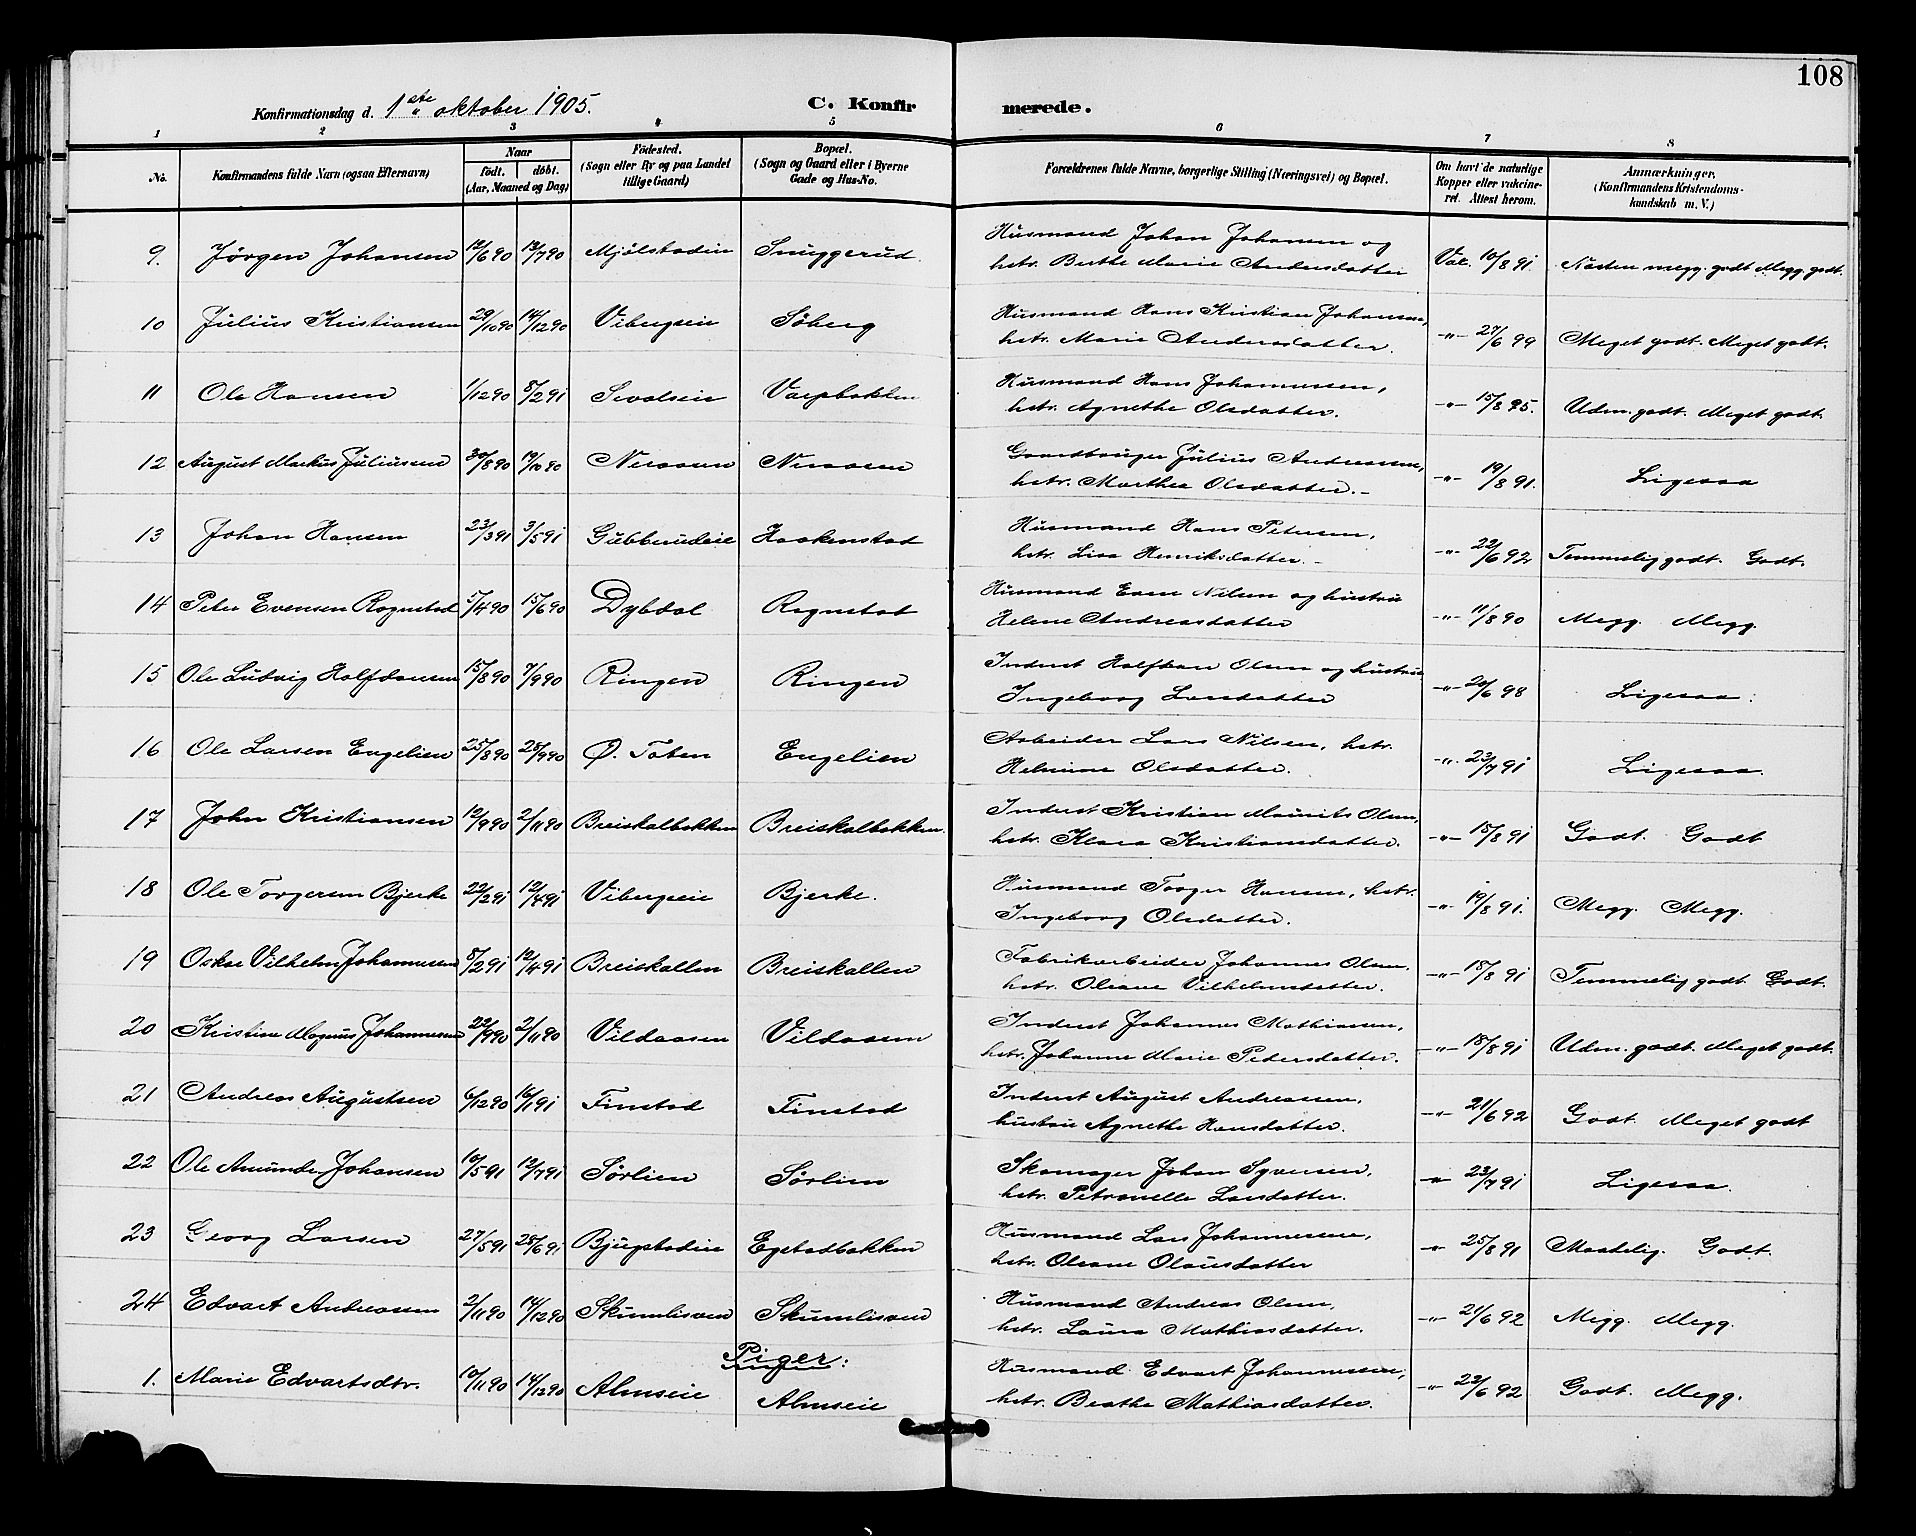 108
Konfirmationsdag d. 1ste oktober 1905.
C. Konfirmerede.
1 2 3 4 5 6 7 8
No.
Konfirmandens fulde Navn (ogsaa Efternavn)
Naar
født. døbt.
(Aar, Maaned og Dag)
Födested.
(Sogn eller By og paa Landet
tillige Gaard)
Bopæl.
(Sogn og Gaard eller i Byerne
Gade og Hus-No.
Forældrenes fulde Navne, borgerlige Stilling (Næringsvei) og Bopæl.
Om havt de naturlige
Kopper eller vakcine-
ret. Attest herom.
Anmærkninger.
(Konfirmandens Kristendoms-
kundskab m. V.)
9. Jörgen Johansen 12/6 90 13/7 90 Mjölstadeie Snuggerud. Husmand Johan Johansen og
hstr. Berthe Marie Andersdatter Vac. 10/8 91. Næsten megg. godt Megg. godt.
10 Julius Kristiansen 29/10 90 14/12 90 Vibergseie Söberg Husmand Hans Kristian Johansen,
hstr. Marie Andersdatter. -"- 27/6 99 Meget godt. Meget godt.
11 Ole Hansen 1/12 90 8/2 91 Sivalseie Varpbakken Husmand Hans Johannessen,
hstr. Agnethe Olsdatter. -"- 15/8 95. Udm. godt. Meget godt.
12 August Markus Juliussen 30/8 90 19/10 90 Neraasen Neraasen Gaardbruger Julius Andreassen,
hstr. Marthea Olsdatter.- -"- 19/8 91. Ligesaa
13 Johan Hansen 23/3 91 3/5 91 Gubberudeie Haakenstad Husmand Hans Petersen,
hstr. Lisa Henriksdatter.- -"- 22/6 92 Temmelig godt. Godt.
14 Peter Evensen Rognstad 5/4 90 15/6 90 Dybdal Rognstad Husmand Even Nilsen og hustru
Helene Andreasdatter -"- 11/8 90 Megg. Megg.
15 Ole Ludvig Halfdansen 15/8 90 7/9 90 Ringen Ringen Inderst Halfdan Olsen og hustru
Ingeborg Larsdatter -"- 20/6 98 Ligesaa.
16 Ole Larsen Engelien 25/8 90 28/9 90 Ø. Toten Engelien Arbeider Lars Nilsen, hstr.
Helmine Olsdatter. -"- 23/7 91 Ligesaa.
17 John Kristiansen 12/9 90 2/11 90 Breiskalbakken Breiskalbakken. Inderst Kristian Maurits Olsen,
hstr. Klara Kristiansdatter. -"- 15/8 91 Godt. Godt
18 Ole Torgersen Bjerke 22/2 91 12/4 91 Vibergseie Bjerke. Husmand Torger Hansen, hstr.
Ingeborg Olsdatter. -"- 19/8 91. Megg. Megg.
19 Oskar Vilhelm Johannessen 8/2 91 12/4 91 Breiskallen Breiskallen Fabrikarbeider Johannes Olsen.
hstr. Oleane Vilhelmsdatter. -"- 18/8 91 Temmelig godt. Godt.
20 Kristian Magnus Johannessen 22/9 90 2/11 90 Vildaasen Vildaasen Inderst Johannes Mathiassen,
hstr. Johanne Marie Pedersdatter. -"- 18/8 91 Udm. godt. Meget godt.
21 Andreas Augustsen 6/12 90 16/1 91 Finstad Finstad Inderst August Andreassen,
hustru Agnethe Hansdatter. -"- 21/6 92 Godt. Meget godt
22 Ole Amunde Johansen 10/5 91 12/7 91 Sörlien Sörlien Skomager Johan Syversen,
hstr. Petronelle Larsdatter. " 23/7 91 Ligesaa.
23 Georg Larsen 27/5 91 28/6 91 Bjugstadeie Egstadbakken Husmand Lars Johannessen,
hstr. Oleane Olausdatter " 25/8 91 Maadelig. Godt.
24 Edvart Andreassen 2/11 90 14/12 90 Skumlisveen Skumlisveen Husmand Andreas Olsen,
hstr. Laura Mathiasdatter. -"- 21/6 92 Megg. Megg.
Piger:
1. Marie Edvartsdtr. 10/11 90 14/12 90 Almseie Almseie Husmand Edvart Johannessen,
hstr. Beathe Mathiasdatter. -"- 22/6 92 Godt. Megg.